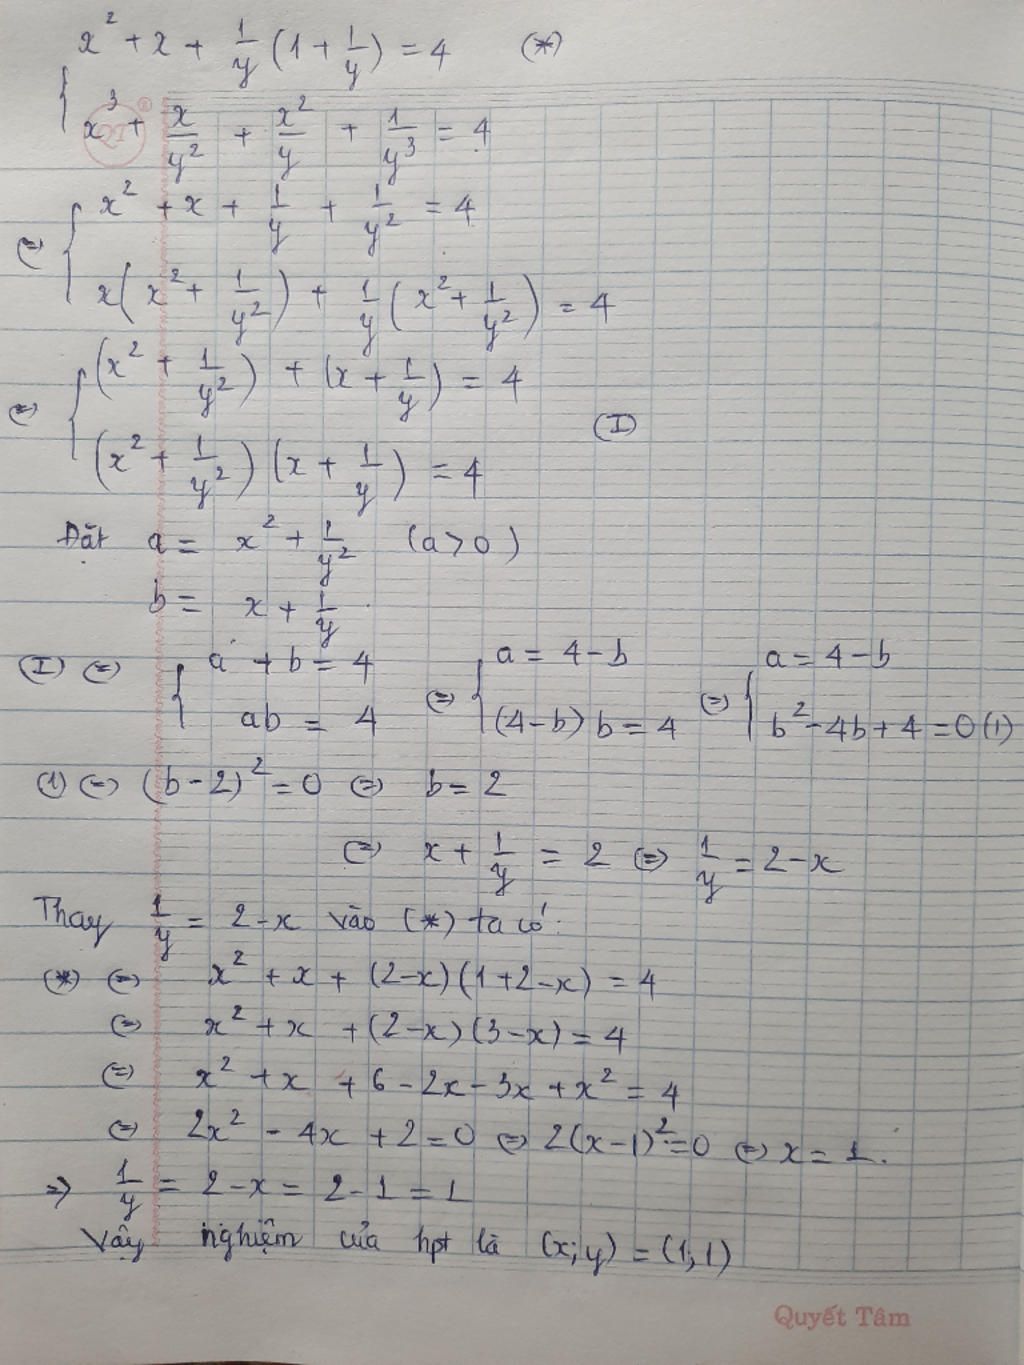 x² + x + 1/y (1 + 1/y) = 4 (*)
x³ + x/y² + x²/y + 1/y³ = 4
⇔ { x² + x + 1/y + 1/y² = 4
x(x² + 1/y²) + 1/y (x² + 1/y²) = 4
⇔ { (x² + 1/y²) + (x + 1/y) = 4
(I)
(x² + 1/y²)(x + 1/y) = 4
Đặt a = x² + 1/y² (a>0)
b = x + 1/y
(I) ⇔ { a + b = 4 ⇔ { a = 4-b ⇔ { a = 4-b
ab = 4 (4-b) b = 4 b² - 4b + 4 = 0 (1)
(1) ⇔ (b-2)² = 0 ⇔ b = 2
⇔ x + 1/y = 2 ⇔ 1/y = 2-x
Thay 1/y = 2-x vào (*) ta có:
(*) ⇔ x² + x + (2-x)(1+2-x) = 4
⇔ x² + x + (2-x)(3-x) = 4
⇔ x² + x + 6 - 2x - 3x + x² = 4
⇔ 2x² - 4x + 2 = 0 ⇔ 2(x-1)² = 0 ⇔ x = 1.
⇒ 1/y = 2-x = 2-1 = 1
Vậy nghiệm của hpt là (x;y) = (1;1)
Quyết Tâm